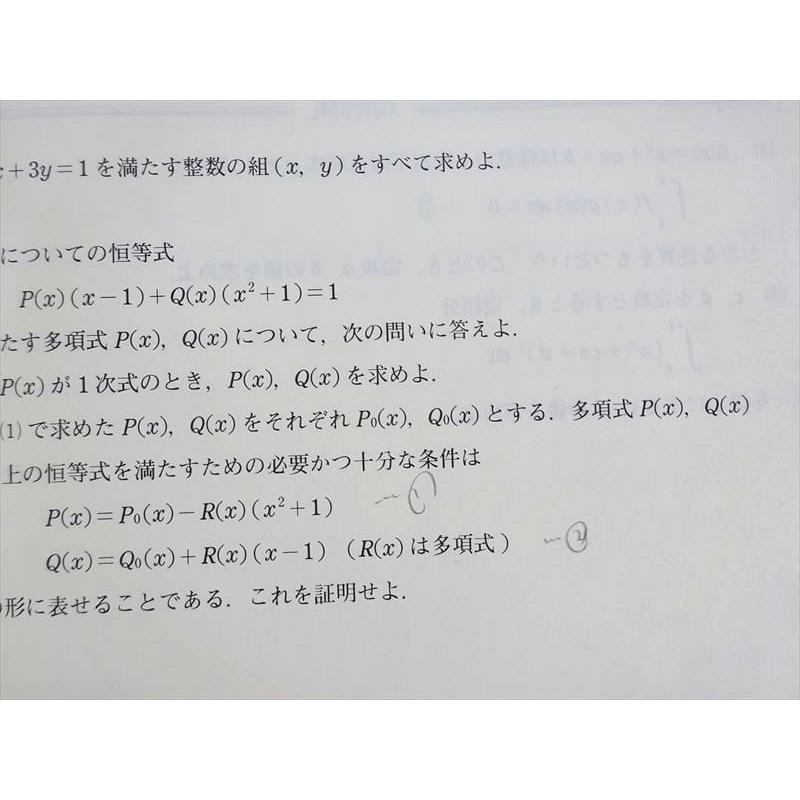 +3y=1を満たす整数の組(x, y)をすべて求めよ.
についての恒等式
P(x)(x−1)+Q(x)(x²+1)=1
たす多項式P(x), Q(x)について, 次の問いに答えよ.
P(x)が1次式のとき, P(x), Q(x)を求めよ.
(1)で求めたP(x), Q(x)をそれぞれP₀(x), Q₀(x)とする. 多項式P(x), Q(x)
上の恒等式を満たすための必要かつ十分な条件は
P(x)=P₀(x)−R(x)(x²+1) ～①
Q(x)=Q₀(x)+R(x)(x−1) (R(x)は多項式) ～②
形に表せることである. これを証明せよ.